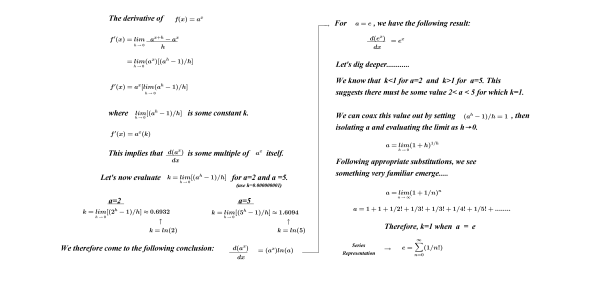 The derivative of f(x) = aˣ
f'(x) = lim h→0 aˣ⁺ʰ − aˣ / h
= lim h→0 (aˣ)[(aʰ − 1)/h]
f'(x) = aˣ[lim h→0 (aʰ − 1)/h]
where lim h→0 [(aʰ − 1)/h] is some constant k.
f'(x) = aˣ(k)
This implies that d(aˣ)/dx is some multiple of aˣ itself.
Let's now evaluate k = lim h→0 [(aʰ − 1)/h] for a=2 and a =5.
(use h=0.000000001)
a=2 a=5
k = lim h→0 [(2ʰ − 1)/h] ≈ 0.6932 k = lim h→0 [(5ʰ − 1)/h] ≈ 1.6094
↑ ↑
k = ln(2) k = ln(5)
We therefore come to the following conclusion: d(aˣ)/dx = (aˣ)ln(a)
For a = e , we have the following result:
d(eˣ)/dx = eˣ
Let's dig deeper...........
We know that k<1 for a=2 and k>1 for a=5. This
suggests there must be some value 2< a < 5 for which k=1.
We can coax this value out by setting (aʰ − 1)/h = 1 , then
isolating a and evaluating the limit as h→0.
a = lim h→0 (1 + h)¹/ʰ
Following appropriate substitutions, we see
something very familiar emerge.....
a = lim n→∞ (1 + 1/n)ⁿ
a = 1 + 1 + 1/2! + 1/3! + 1/3! + 1/4! + 1/5! + ........
Therefore, k=1 when a = e
Series
Representation → e = ∞ ∑ n=0 (1/n!)